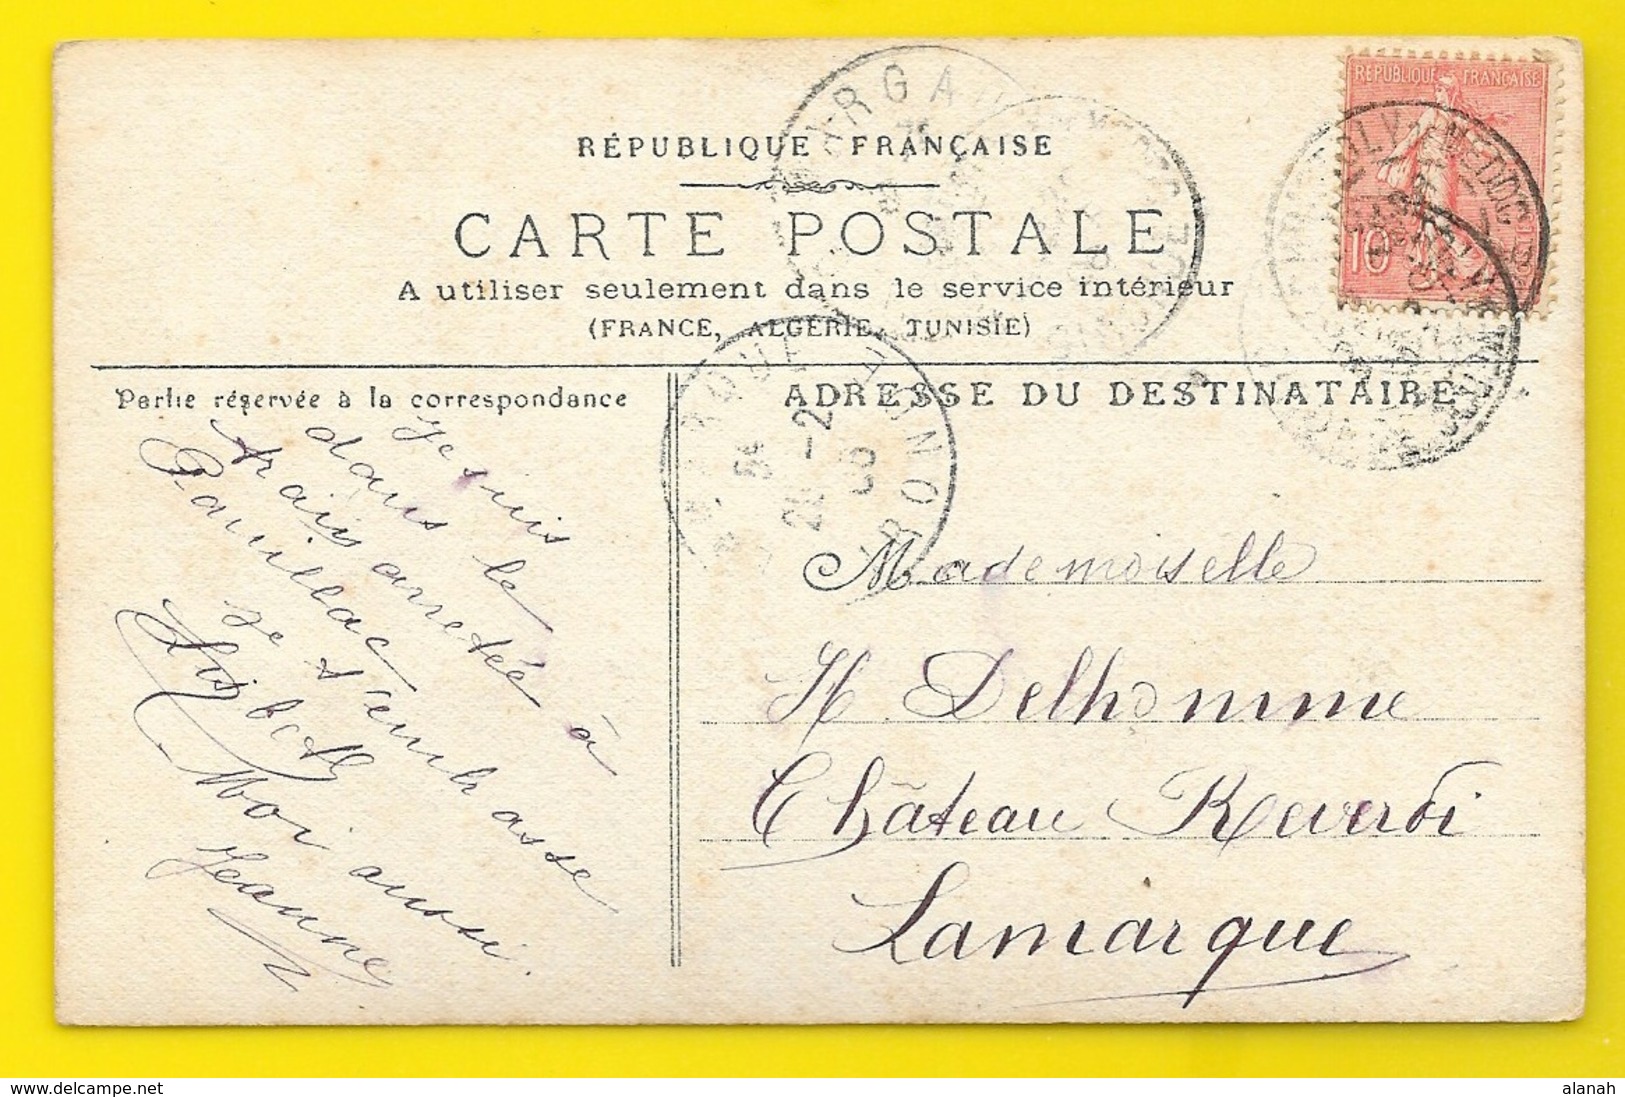 RÉPUBLIQUE FRANÇAISE
CARTE POSTALE
A utiliser seulement dans le service intérieur
(FRANCE, ALGÉRIE, TUNISIE)
Partie réservée à la correspondance
ADRESSE DU DESTINATAIRE
RÉPUBLIQUE FRANÇAISE
10
Je suis
dans le
train arretée à
Pauillac
Je t'embrasse
Lisbeth
Moi aussi
Jeanne
Mademoiselle
H. Delhomme
Château Reverdi
Lamarque
LAMARQUE
GIRONDE
28 -2
alanah